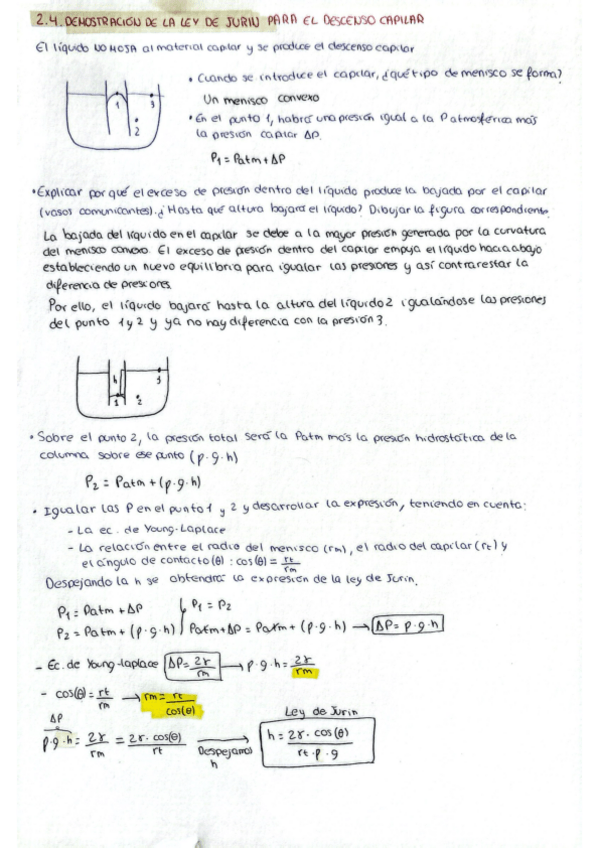 2.4. DEMOSTRACIÓN DE LA LEY DE JURIN PARA EL DESCENSO CAPILAR
El líquido NO MOJA al material capilar y se produce el descenso capilar
• Cuando se introduce el capilar, ¿qué tipo de menisco se forma?
Un menisco convexo
• En el punto 1, habrá una presión igual a la Patmosférica más
la presión capilar ΔP.
P1 = Patm + ΔP
1
2
3
• Explicar por qué el exceso de presión dentro del líquido produce la bajada por el capilar
(vasos comunicantes). ¿Hasta que altura bajará el líquido? Dibujar la figura correspondiente.
La bajada del líquido en el capilar se debe a la mayor presión generada por la curvatura
del menisco convexo. El exceso de presión dentro del capilar empuja el líquido hacia abajo
estableciendo un nuevo equilibrio para igualar las presiones y así contrarestar la
diferencia de presiones.
Por ello, el líquido bajará hasta la altura del líquido 2 igualándose las presiones
del punto 1 y 2 y ya no hay diferencia con la presión 3.
h
3
1 2
• Sobre el punto 2, la presión total será la Patm más la presión hidrostática de la
columna sobre ese punto (ρ·g·h)
P2 = Patm + (ρ·g·h)
• Igualar las P en el punto 1 y 2 y desarrollar la expresión, teniendo en cuenta:
- La ec. de Young-Laplace
- La relación entre el radio del menisco (rm), el radio del capilar (rt) y
el ángulo de contacto (θ): cos(θ) = rt/rm
Despejando la h se obtendrá la expresión de la ley de Jurin.
P1 = Patm + ΔP P1 = P2
P2 = Patm + (ρ·g·h) Patm + ΔP = Patm + (ρ·g·h) → ΔP = ρ·g·h
- Ec. de Young-laplace ΔP = 2γ/rm → ρ·g·h = 2γ/rm
- cos(θ) = rt/rm → rm = rt/cos(θ)
ΔP
Ley de Jurin
ρ·g·h = 2γ/rm = 2γ·cos(θ)/rt → Despejamos h h = 2γ·cos(θ)/rt·ρ·g